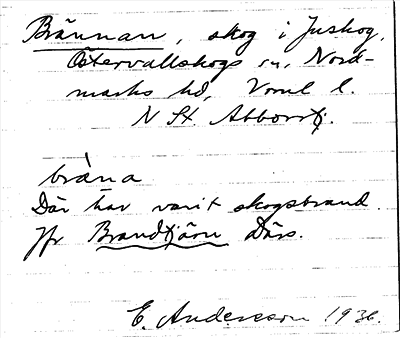 Brännan, skog i Juskog,
Östervallskogs sn, Nord-
marks hd, Vrml l.
N St. Abborrtj.
bräna
Där har varit skogsbrand.
Jfr Brandtjärn Därs.
E. Andersson 1936.